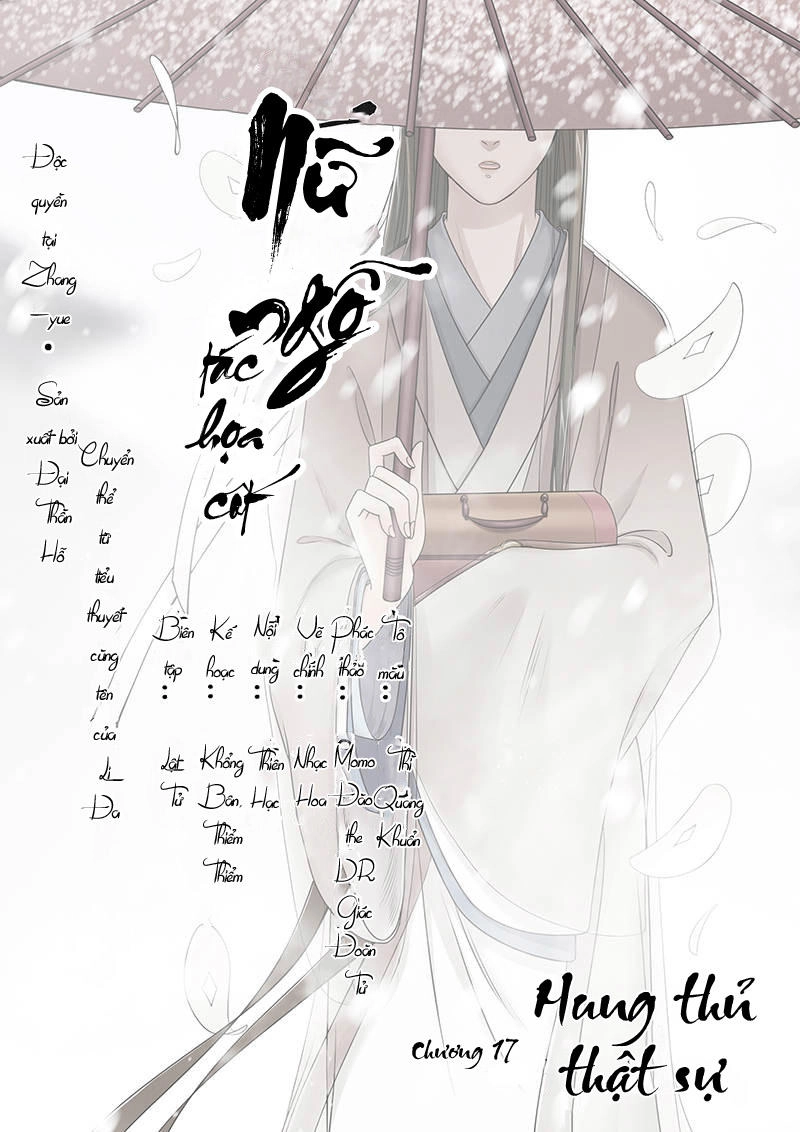 Nữ
ngỗ
tác
họa
cốt
Độc
quyền
tại
Zhang
-yue
•
Sản
xuất bởi
Đại
Thần
Hỗ
Chuyển
thể
từ
tiểu
thuyết
cùng
tên
của
Li
Đa
Biên
tập
:
Lật
Tử
Kế
hoạc
:
Khổng
Bân,
Thiểm
Thiểm
Nội
dung
:
Thiên
Hạc
Vẽ
chính
:
Nhạc
Hoa
Phác
thảo
:
Momo
Đào
the
DR
Giác
Đoàn
Tử
Tô
màu
:
Thì
Quảng
Khuẩn
Chương 17
Hung thủ
thật sự